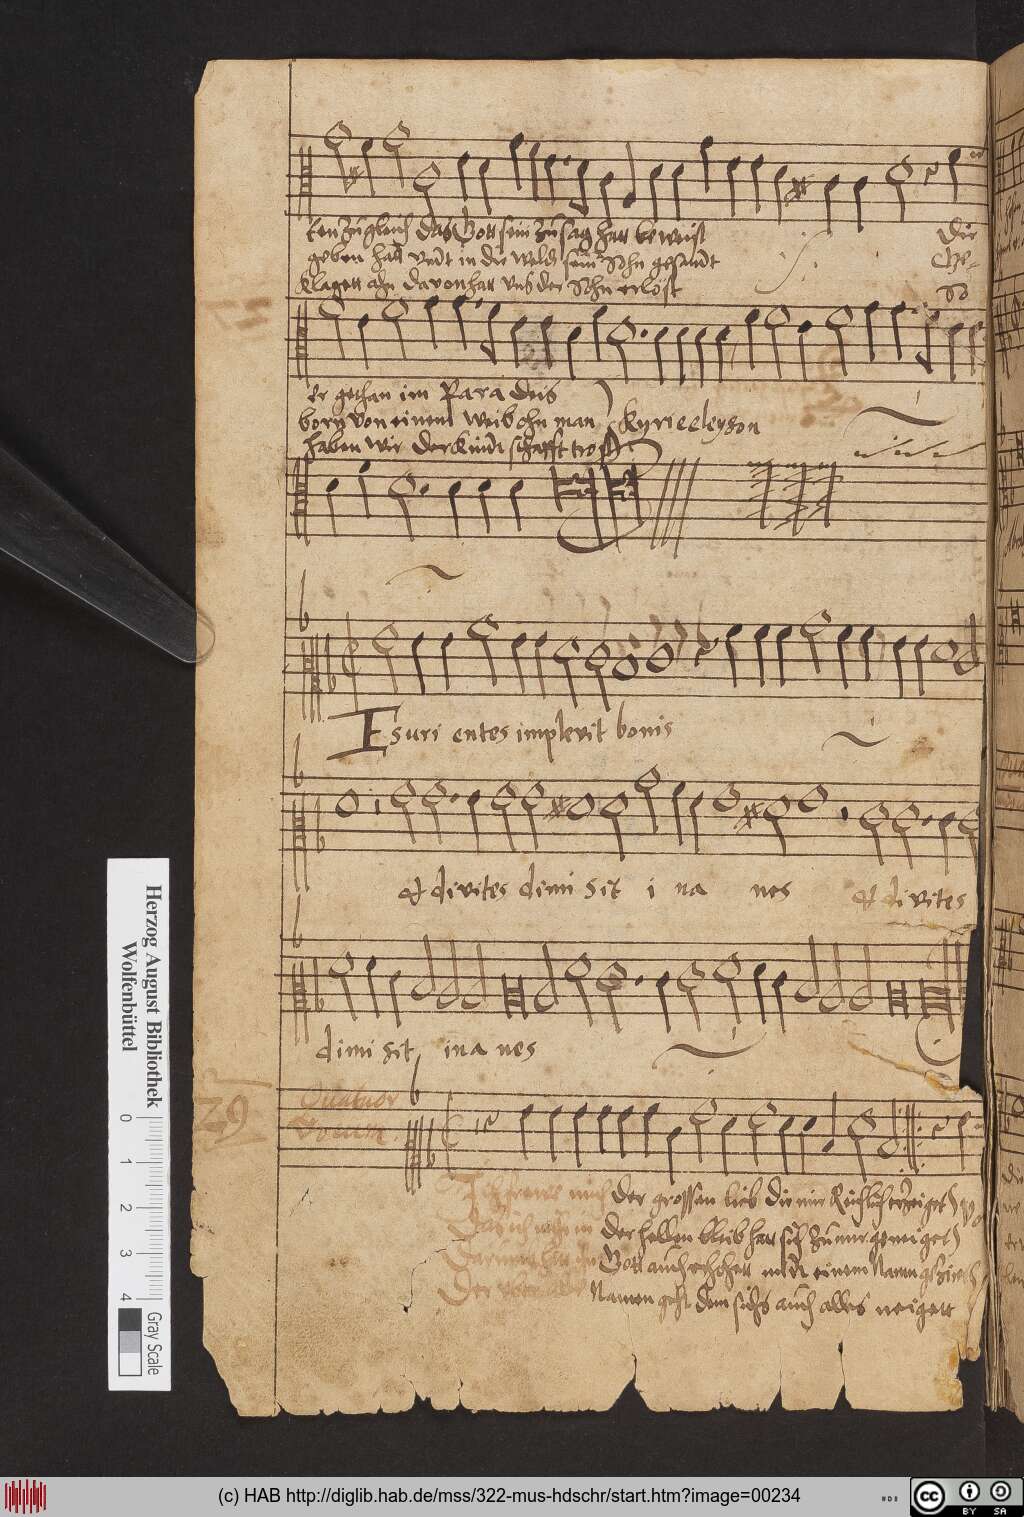 ten zu gleich das Gott sein zusag hatt beweist
Die
geben hatt vndt in die Weldt sein Sohn gesandt
Ge-
klagett ahn davon hatt vns der Sohn erlöst
So
er gethan im Paradeis
born von einem Weib ohn man
Kyrieeleyson
haben wir der kündtschafft trost
Esuri entes implevit bonis
et divites dimi sit i na nes et divites
dimi sit ina nes
29
Quatuor
Vocum
Ich frewe mich der grossen lieb die mir
Das ich nicht in der hellen bleib hatt sich zu mir geneiget
Darumb hatt Gott auch mitt einem Namen
Der vber alle Namen geht dem sichs auch alles neigett
Herzog August Bibliothek
Wolfenbüttel
0 1 2 3 4
Gray Scale
(c) HAB http://diglib.hab.de/mss/322-mus-hdschr/start.htm?image=00234
cc BY SA